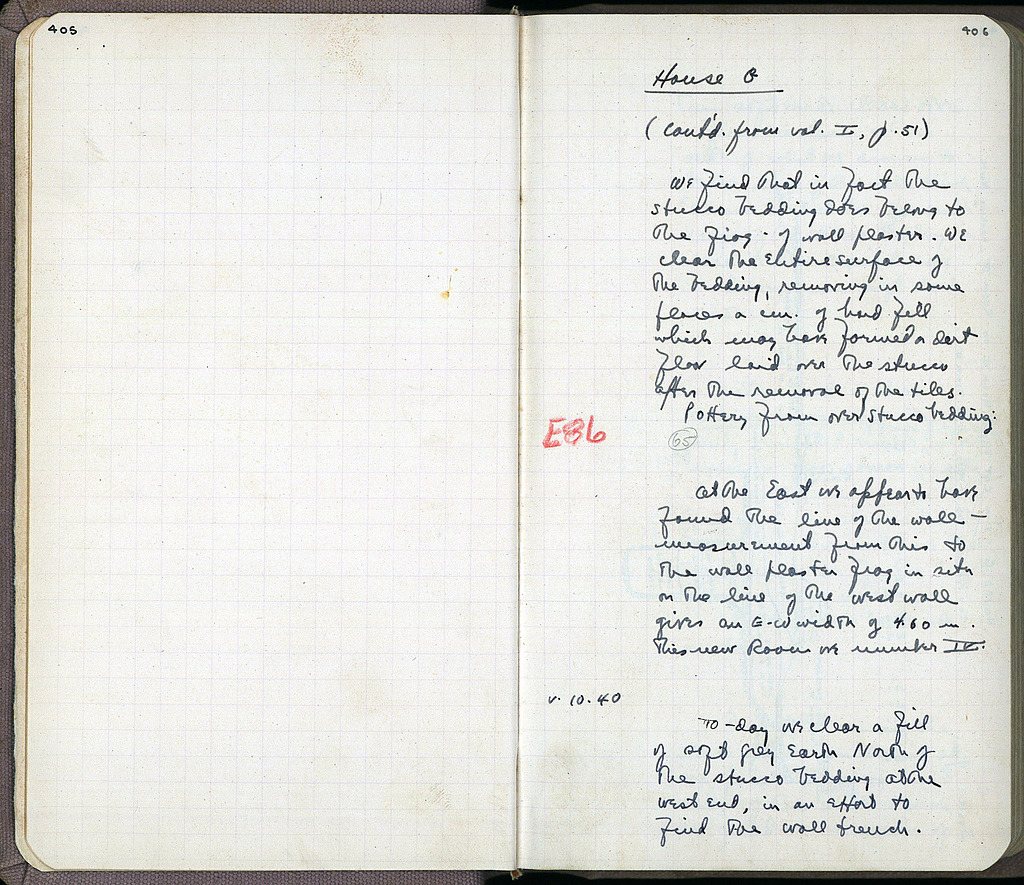 405
406
House
(cont'd. from vol. I, p. 51)
We find that in fact the
stucco bedding does belong to
the frag. of wall plaster. We
clear the entire surface of
the bedding, removing in some
places a cm. of hard fill
which may have formed a dirt
floor laid over the stucco
after the removal of the tiles.
Pottery from over stucco bedding:
E86
65
At the East we appear to have
found the line of the wall –
measurement from this to
the wall plaster frag in situ
on the line of the west wall
gives an E-W width of 4.60 m.
This new Room we number IV.
V. 10. 40
To-day we clear a fill
of soft grey earth North of
the stucco bedding at the
west end, in an effort to
find the wall trench.